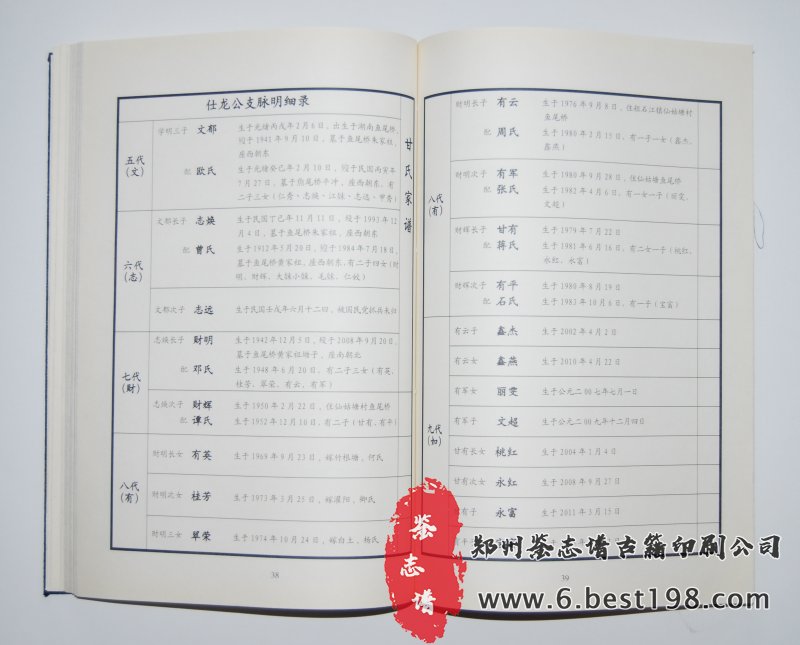 仕龙公支脉明细录
五代
(文)
学明三子 文郁 生于光绪丙戌年2月6日，出生于湖南鱼尾桥，
殁于1941年9月10日，墓于鱼尾桥朱家祖，
座西朝东
配 欧氏 生于光绪癸巳年2月10日，殁于民国丙寅年
7月27日，墓于鱼尾桥平冲，座西朝东，有
二子三女(仁秀、志焕、江妹、志远、甲秀)
六代
(志)
文郁长子 志焕 生于民国丁巳年11月11日，殁于1993年12
月4日，墓于鱼尾桥朱家祖，座西朝东
配 曾氏 生于1912年5月20日，殁于1984年7月18日，
墓于鱼尾桥黄家祖，座西朝东，有二子四女(财
明、财辉、大妹小妹、毛妹、仁姣)
文郁次子 志远 生于民国壬戌年六月十二四，被国民党抓兵未归
七代
(财)
志焕长子 财明 生于1942年12月5日，殁于2008年9月20日，
墓于鱼尾桥黄家祖塘子，座南朝北
配 邓氏 生于1948年6月20日，有二子三女(有英、
桂芳、翠荣、有云、有军)
志焕次子 财辉 生于1950年2月22日，住仙姑塘村鱼尾桥
配 谭氏 生于1952年12月10日，有二子(甘有、有平)
八代
(有)
财明长女 有英 生于1969年9月23日，嫁竹根塘，何氏
财明次女 桂芳 生于1973年3月25日，嫁灌阳，卿氏
财明三女 翠荣 生于1974年10月24日，嫁白土，杨氏
甘氏家谱
38
八代
(有)
财明长子 有云 生于1976年9月8日，住社石江镇仙姑塘村
鱼尾桥
配 周氏 生于1980年2月15日，有一子一女(鑫杰、
鑫燕)
财明次子 有军 生于1980年9月28日，住仙姑塘鱼尾桥
配 张氏 生于1982年4月6日，有一女一子(丽雯、
文超)
财辉长子 甘有 生于1979年7月22日
配 蒋氏 生于1981年6月16日，有二女一子(桃红、
永红、永富)
财辉次子 有平 生于1980年8月19日
配 石氏 生于1983年10月6日，有一子(宝富)
九代
(如)
有云子 鑫杰 生于2002年4月2日
有云女 鑫燕 生于2010年4月22日
有军女 丽雯 生于公元二00七年七月一日
有军子 文超 生于公元二00九年十二月四日
甘有长女 桃红 生于2004年1月4日
甘有次女 永红 生于2008年9月27日
有子 永富 生于2011年3月15日
39
鉴志谱
郑州鉴志谱古籍印刷公司
www.6.best198.com